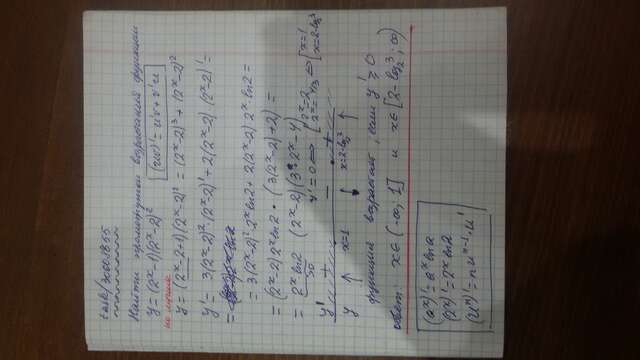 task/30008855
Найти промежутки возрастания функции
y = (2^x-1)(2^x-2)^2 (uv)' = u'v + v'u
но лучше
y = (2^x-2+1)(2^x-2)^2 = (2^x-2)^3 + (2^x-2)^2
y' = 3(2^x-2)^2·(2^x-2)' + 2(2^x-2)·(2^x-2)' =
=
= 3(2^x-2)^2·2^x ln2 + 2(2^x-2) 2^x ln2 =
= (2^x-2) 2^x ln2 · (3(2^x-2)+2) =
= 2^x ln2 (2^x-2)(3·2^x-4)
>0 y' = 0 ⇔ [2^x=2 2^x=4/3 ⇔ [x=1 x=2-log_2 3
y' + - +
y ↑ x=1 ↓ x=2-log_2 3 ↑
функция возрастает, если y' ≥ 0
ответ: x∈(-∞; 1] и x∈[2-log_2 3; ∞)
(a^x)' = a^x ln a
(2^x)' = 2^x ln2
(u^n)' = n u^{n-1}·u'